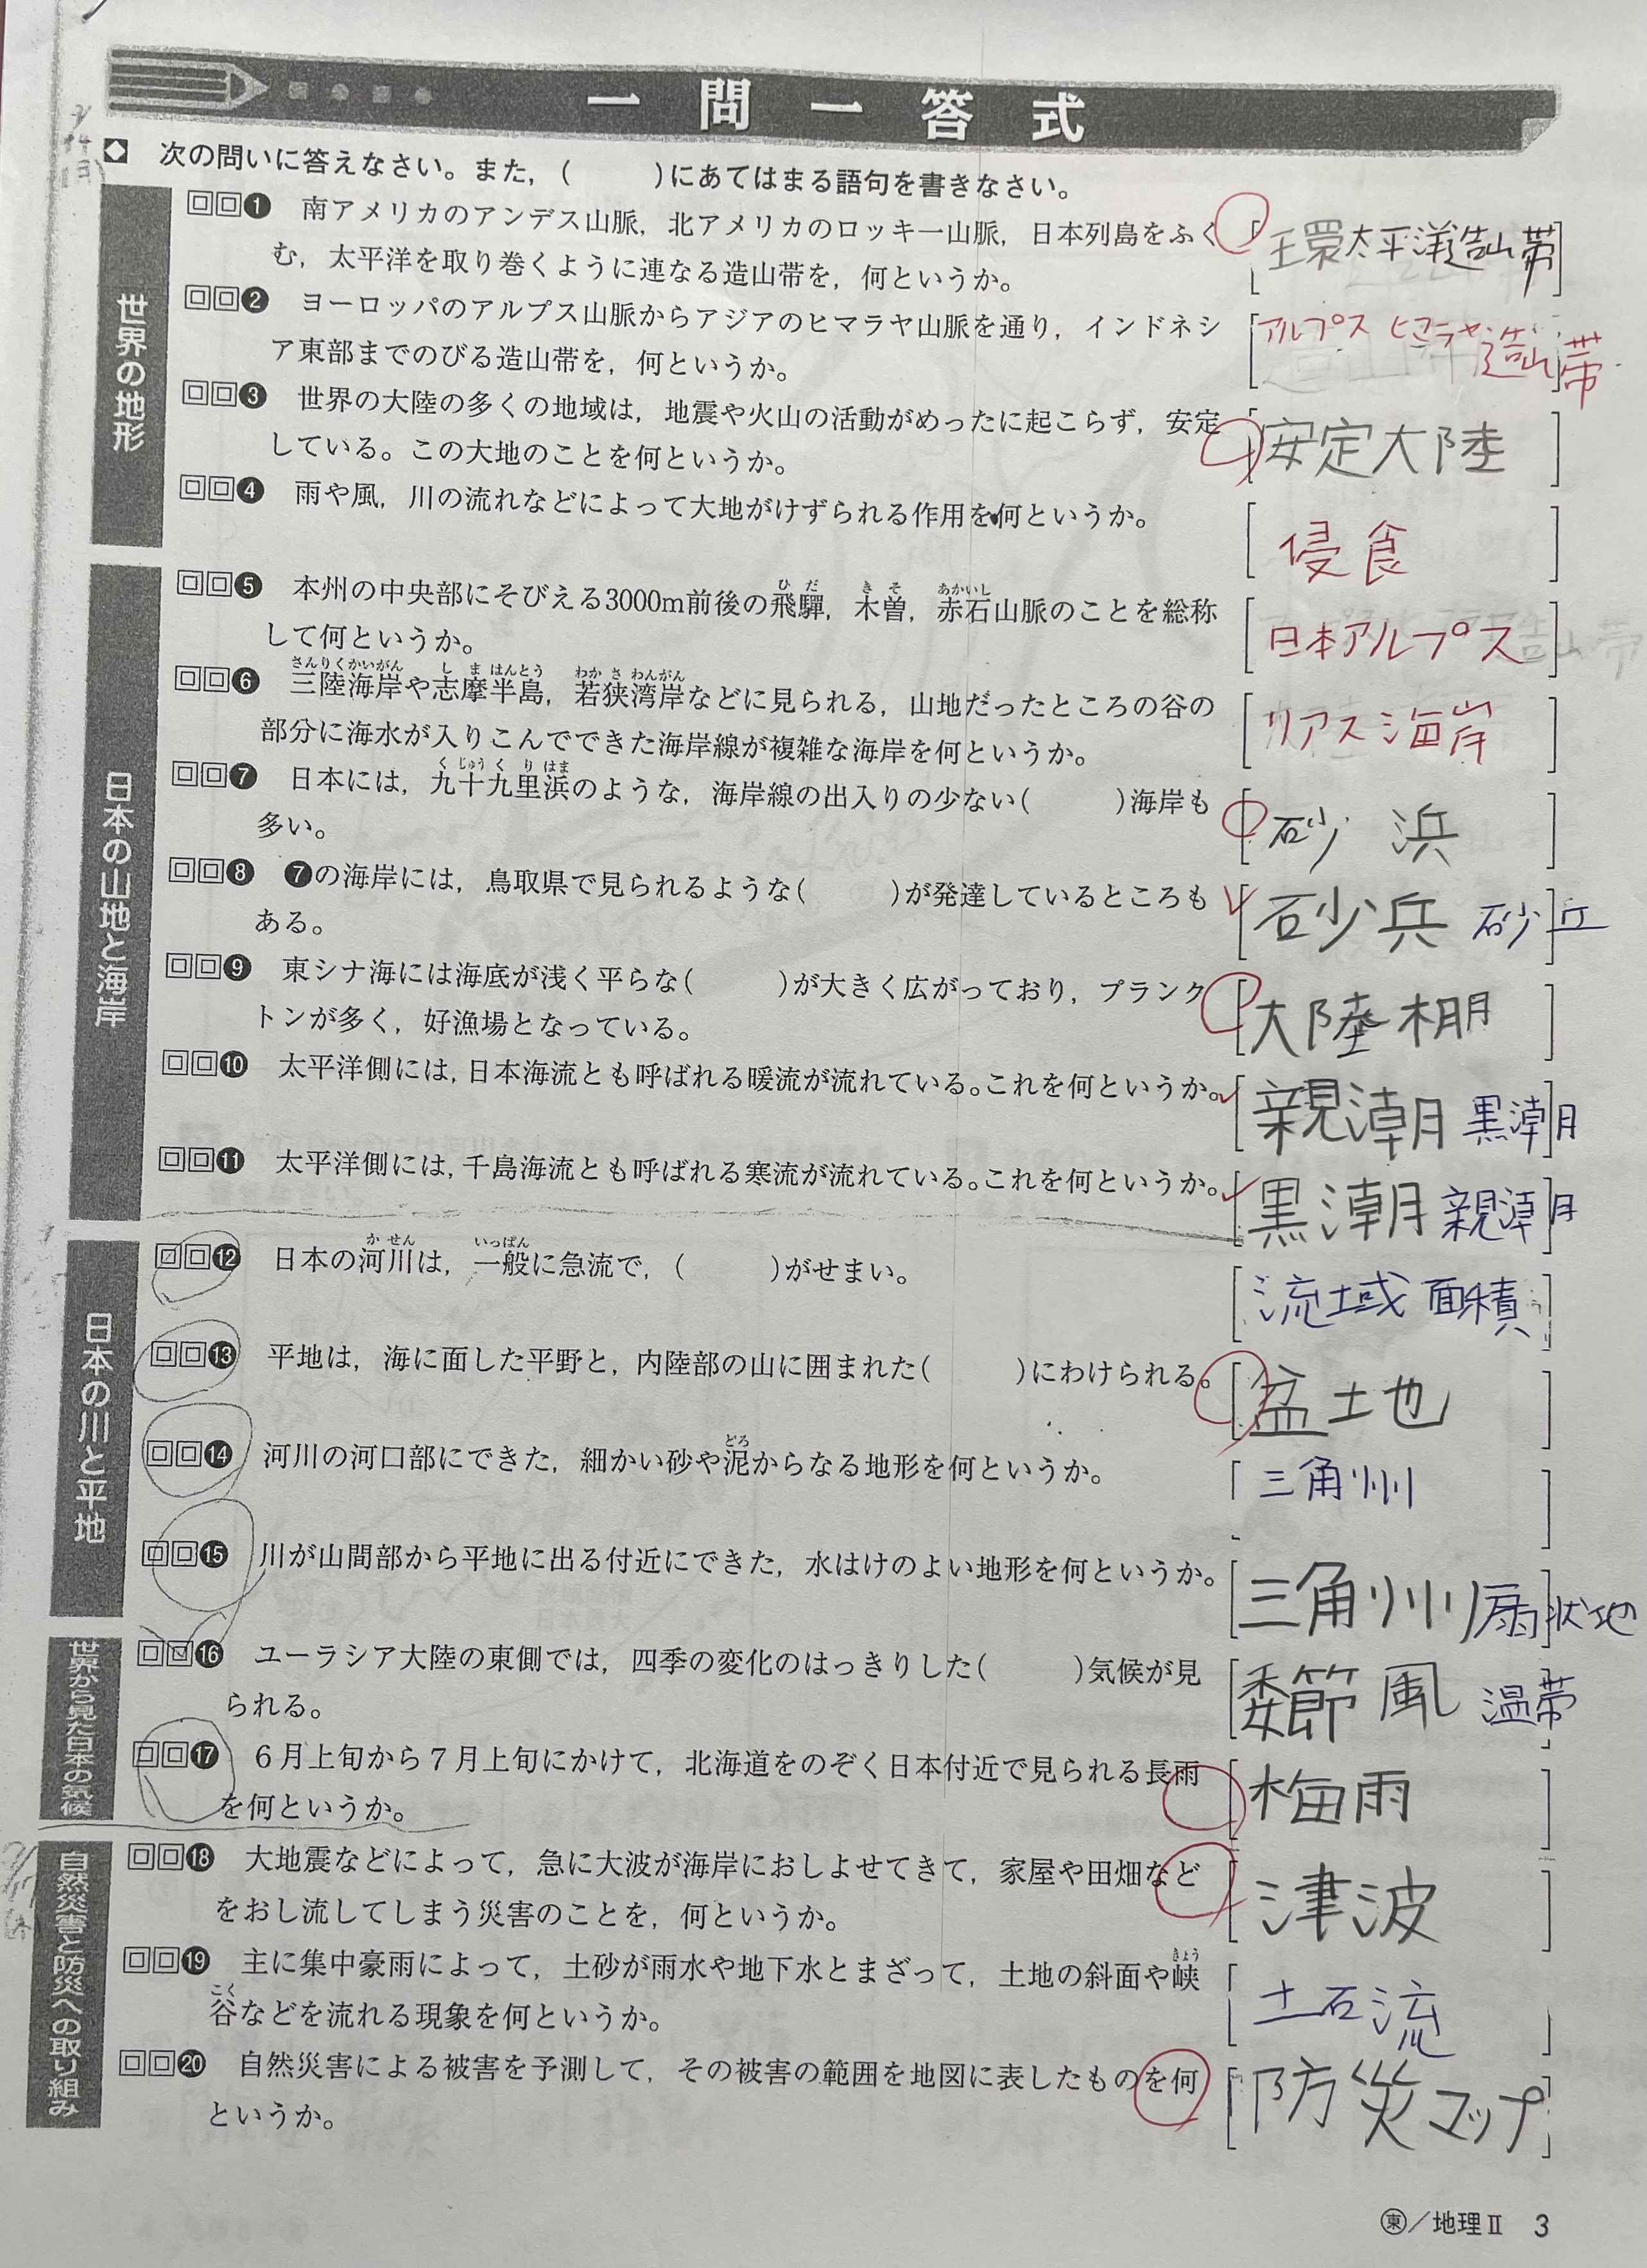 一問一答式
◆ 次の問いに答えなさい。また，(　　)にあてはまる語句を書きなさい。
世界の地形
❶ 南アメリカのアンデス山脈，北アメリカのロッキー山脈，日本列島をふく
む，太平洋を取り巻くように連なる造山帯を，何というか。
[環太平洋造山帯]
❷ ヨーロッパのアルプス山脈からアジアのヒマラヤ山脈を通り，インドネシ
ア東部までのびる造山帯を，何というか。
[アルプスヒマラヤ造山帯]
❸ 世界の大陸の多くの地域は，地震や火山の活動がめったに起こらず，安定
している。この大地のことを何というか。
[安定大陸]
❹ 雨や風，川の流れなどによって大地がけずられる作用を何というか。
[侵食]
日本の山地と海岸
ひだ きそ あかいし
❺ 本州の中央部にそびえる3000m前後の飛騨，木曽，赤石山脈のことを総称
して何というか。
[日本アルプス]
さんりくかいがん しまはんとう わかさわんがん
❻ 三陸海岸や志摩半島，若狭湾岸などに見られる，山地だったところの谷の
部分に海水が入りこんでできた海岸線が複雑な海岸を何というか。
[リアス海岸]
くじゅうくりはま
❼ 日本には，九十九里浜のような，海岸線の出入りの少ない(　　)海岸も
多い。
[砂浜]
❽ ❼の海岸には，鳥取県で見られるような(　　)が発達しているところも
ある。
[砂兵 砂丘]
❾ 東シナ海には海底が浅く平らな(　　)が大きく広がっており，プランク
トンが多く，好漁場となっている。
[大陸棚]
❿ 太平洋側には,日本海流とも呼ばれる暖流が流れている。これを何というか。
[親潮 黒潮]
⓫ 太平洋側には,千島海流とも呼ばれる寒流が流れている。これを何というか。
[黒潮 親潮]
日本の川と平地
かせん いっぱん
⓬ 日本の河川は，一般に急流で，(　　)がせまい。
[流域面積]
⓭ 平地は，海に面した平野と，内陸部の山に囲まれた(　　)にわけられる。
[盆地]
どろ
⓮ 河川の河口部にできた，細かい砂や泥からなる地形を何というか。
[三角州]
⓯ 川が山間部から平地に出る付近にできた，水はけのよい地形を何というか。
[三角州 扇状地]
世界から見た日本の気候
⓰ ユーラシア大陸の東側では，四季の変化のはっきりした(　　)気候が見
られる。
[季節風 温帯]
⓱ 6月上旬から7月上旬にかけて，北海道をのぞく日本付近で見られる長雨
を何というか。
[梅雨]
自然災害と防災への取り組み
⓲ 大地震などによって，急に大波が海岸におしよせてきて，家屋や田畑など
をおし流してしまう災害のことを，何というか。
[津波]
きょう
⓳ 主に集中豪雨によって，土砂が雨水や地下水とまざって，土地の斜面や峡
こく
谷などを流れる現象を何というか。
[土石流]
⓴ 自然災害による被害を予測して，その被害の範囲を地図に表したものを何
というか。
[防災マップ]
㊎東／地理Ⅱ 3